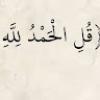 ﴿قُلِ الْحَمْدُ لِلَّهِ